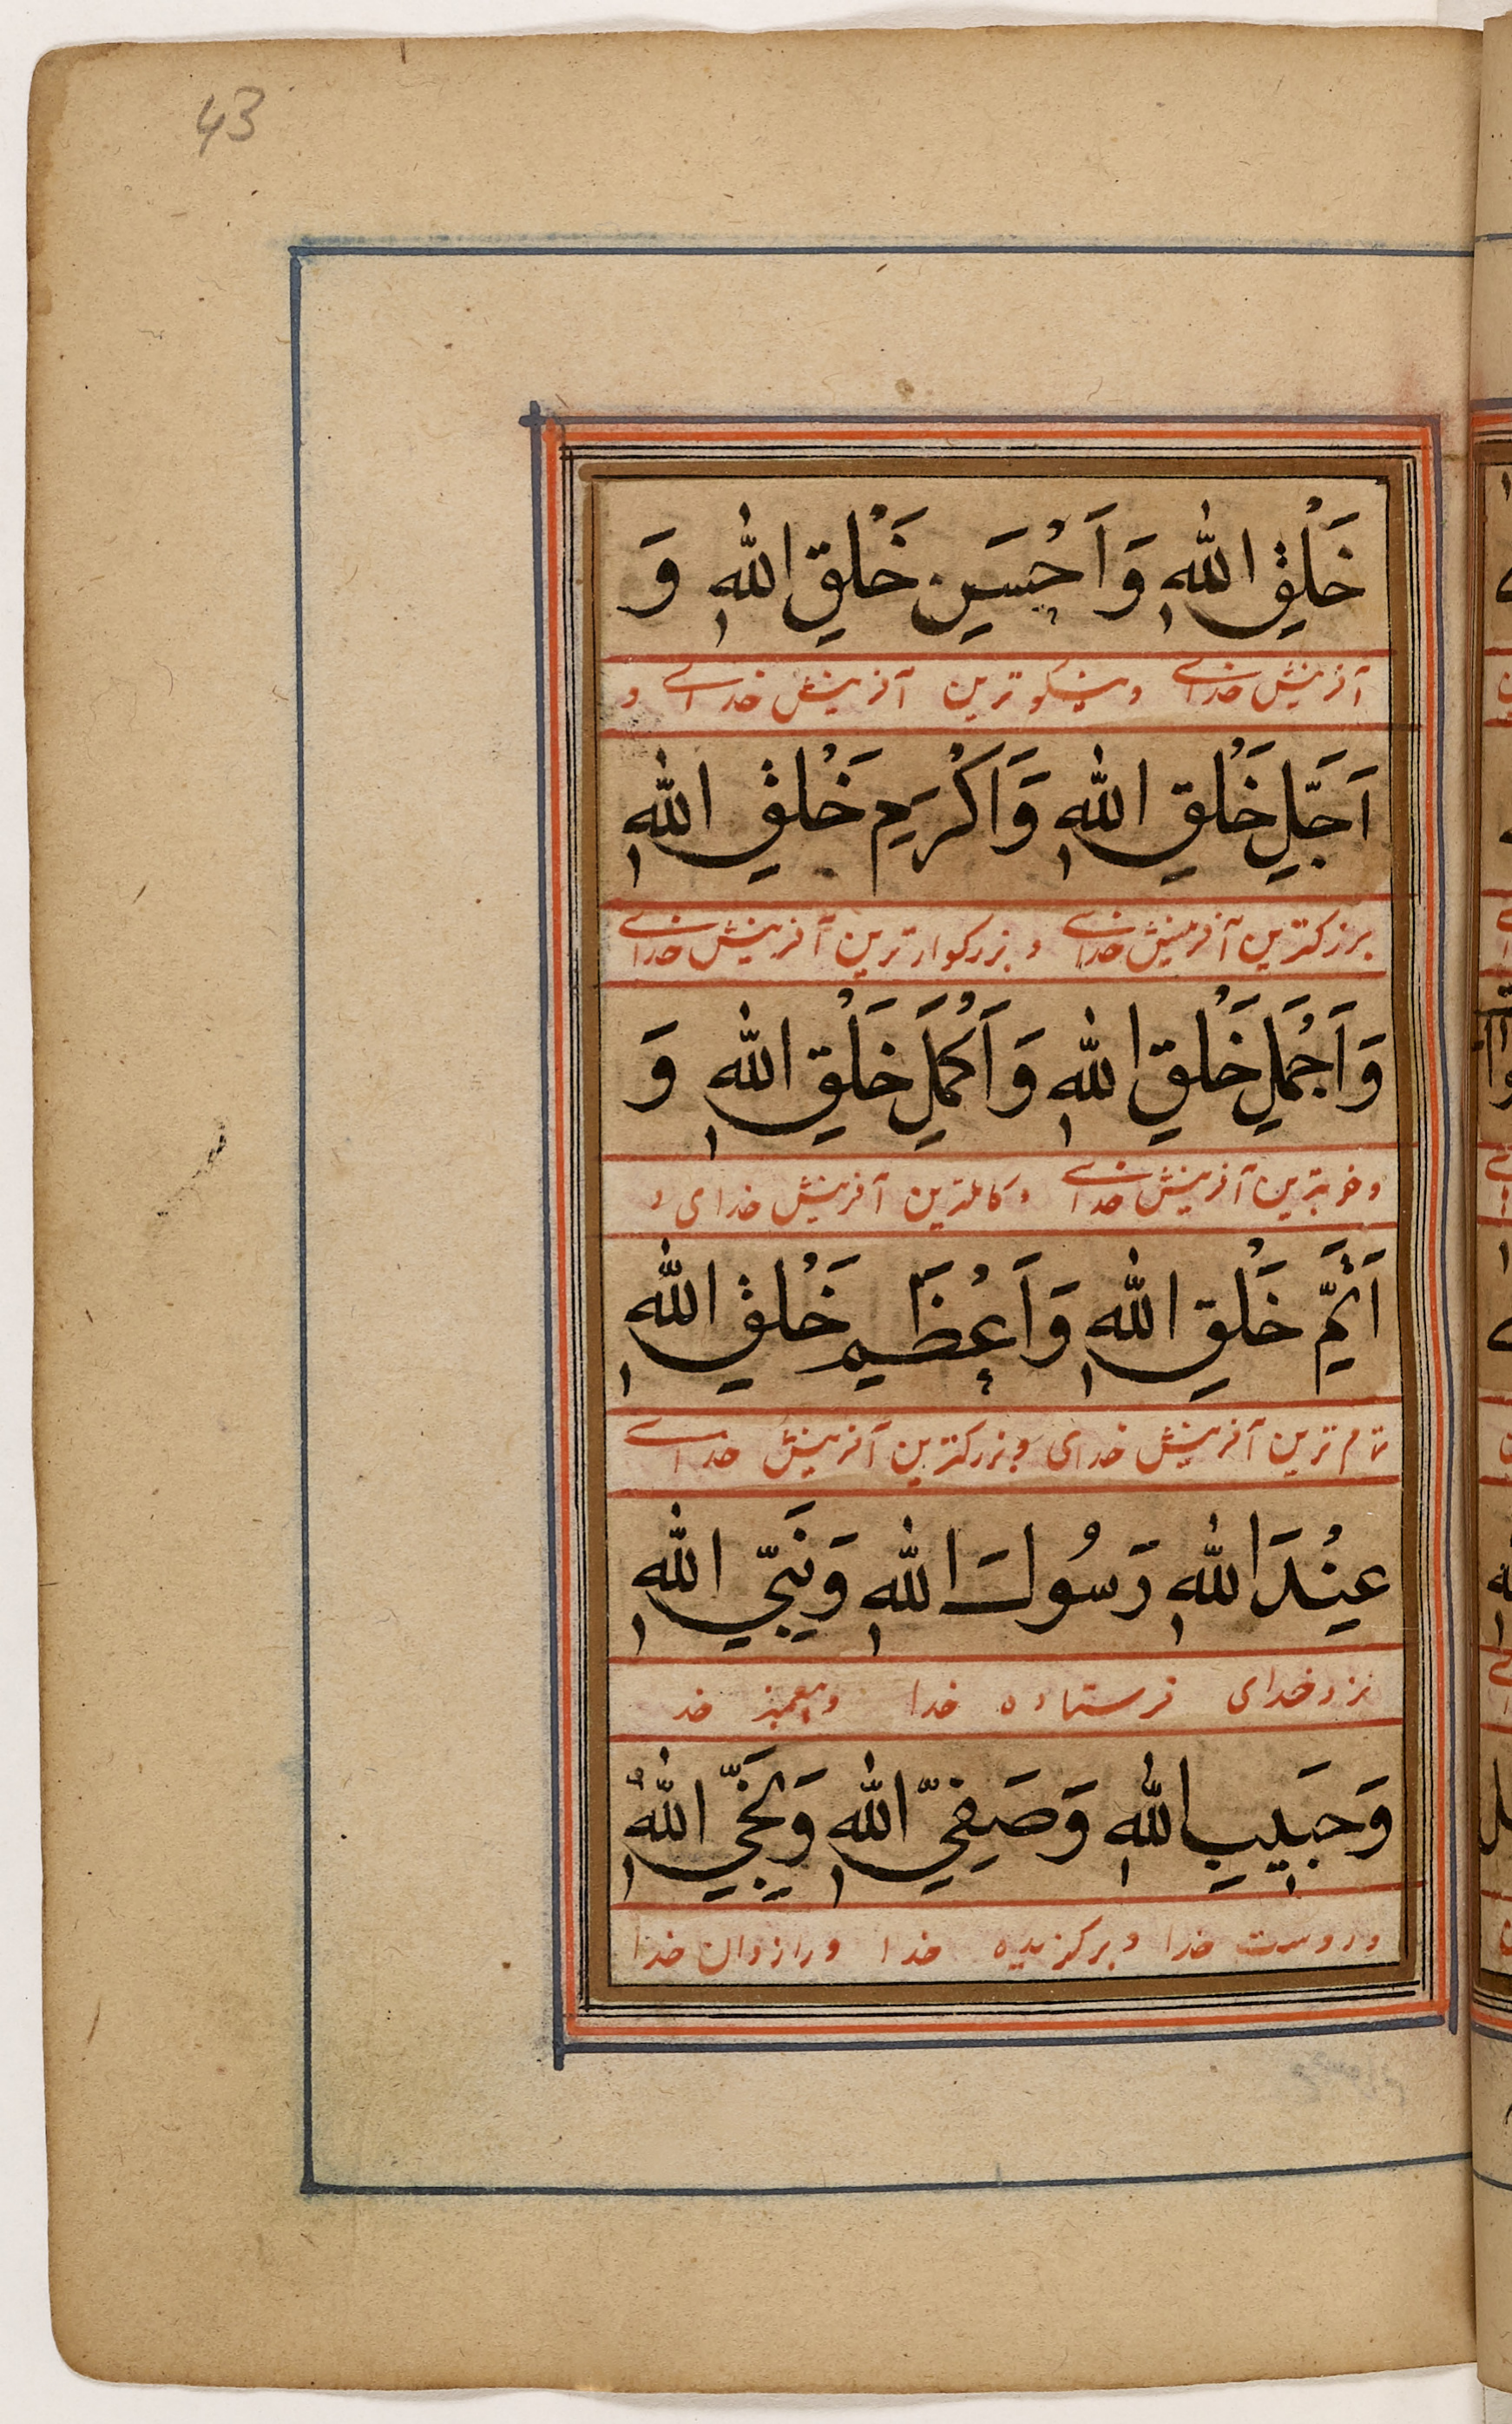 43
خَلْقِ اللهِ وَاَحْسَنِ خَلْقِ اللهِ وَ
آفرینش خدای و نیکوترین آفرینش خدای و
اَجَلِّ خَلْقِ اللهِ وَاَكْرَمِ خَلْقِ اللهِ
بزرکترین آفرینش خدای و بزرکوارترین آفرینش خدای
وَاَجْمَلِ خَلْقِ اللهِ وَاَكْمَلِ خَلْقِ اللهِ وَ
و خوبترین آفرینش خدای و کاملترین آفرینش خدای و
اَتَمِّ خَلْقِ اللهِ وَاَعْظَمِ خَلْقِ اللهِ
تام ترین آفرینش خدای و بزرکترین آفرینش خدای
عِنْدَ اللهِ رَسُولِ اللهِ وَنَبِيِّ اللهِ
نزد خدای فرستاده خدا و پیغمبر خد
وَحَبِيبِ اللهِ وَصَفِيِّ اللهِ وَنَجِيِّ اللهِ
و دوست خدا و برکزیده خدا و رازدان خدا